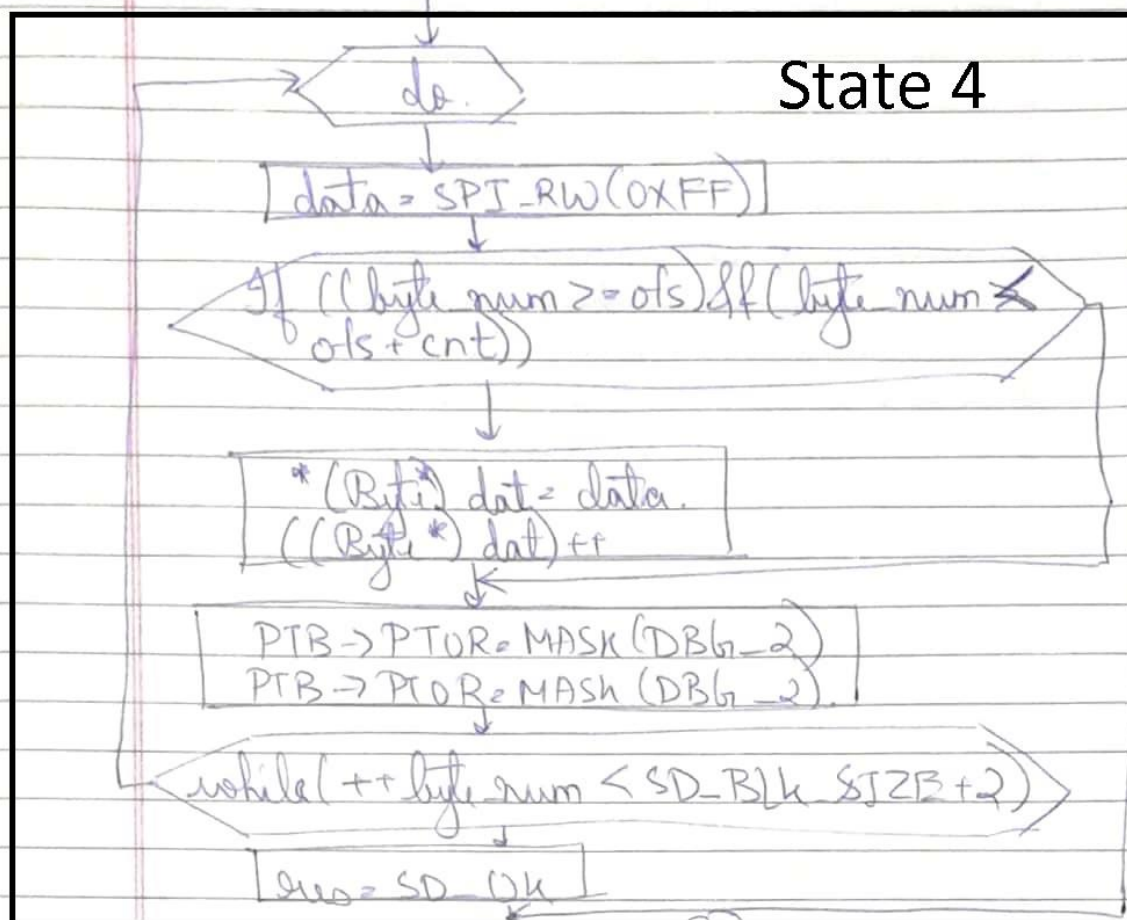 State 4
do.
data = SPI_RW(0XFF)
If ((byte_num >= ofs) && (byte_num <
ofs + cnt))
*(Byte*) dat = data.
((Byte*) dat)++
PTB -> PTOR = MASK(DBG_2)
PTB -> PTOR = MASK(DBG_2).
while(++byte_num < SD_BLK_SIZE+2)
res = SD_OK